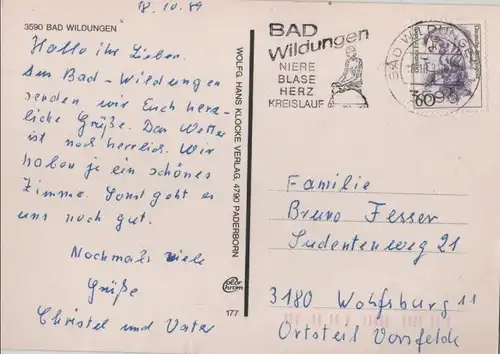 18.10.89
3590 BAD WILDUNGEN
Hallo ihr Lieben.
Aus Bad-Wildungen
senden wir Euch herz-
liche Grüße. Das Wetter
ist noch herrlich. Wir
haben je ein schönes
Zimme. Sonst geht es
uns noch gut.
Nochmals viele
Grüße
Christel und Vater
WOLFG. HANS KLOCKE VERLAG, 4790 PADERBORN
177
BAD
Wildungen
NIERE
BLASE
HERZ
KREISLAUF
BAD WILDUNGEN
3590
60
Familie
Bruno Fesser
Sudentenweg 21
3180 Wolfsburg 11
Ortsteil Vorsfelde